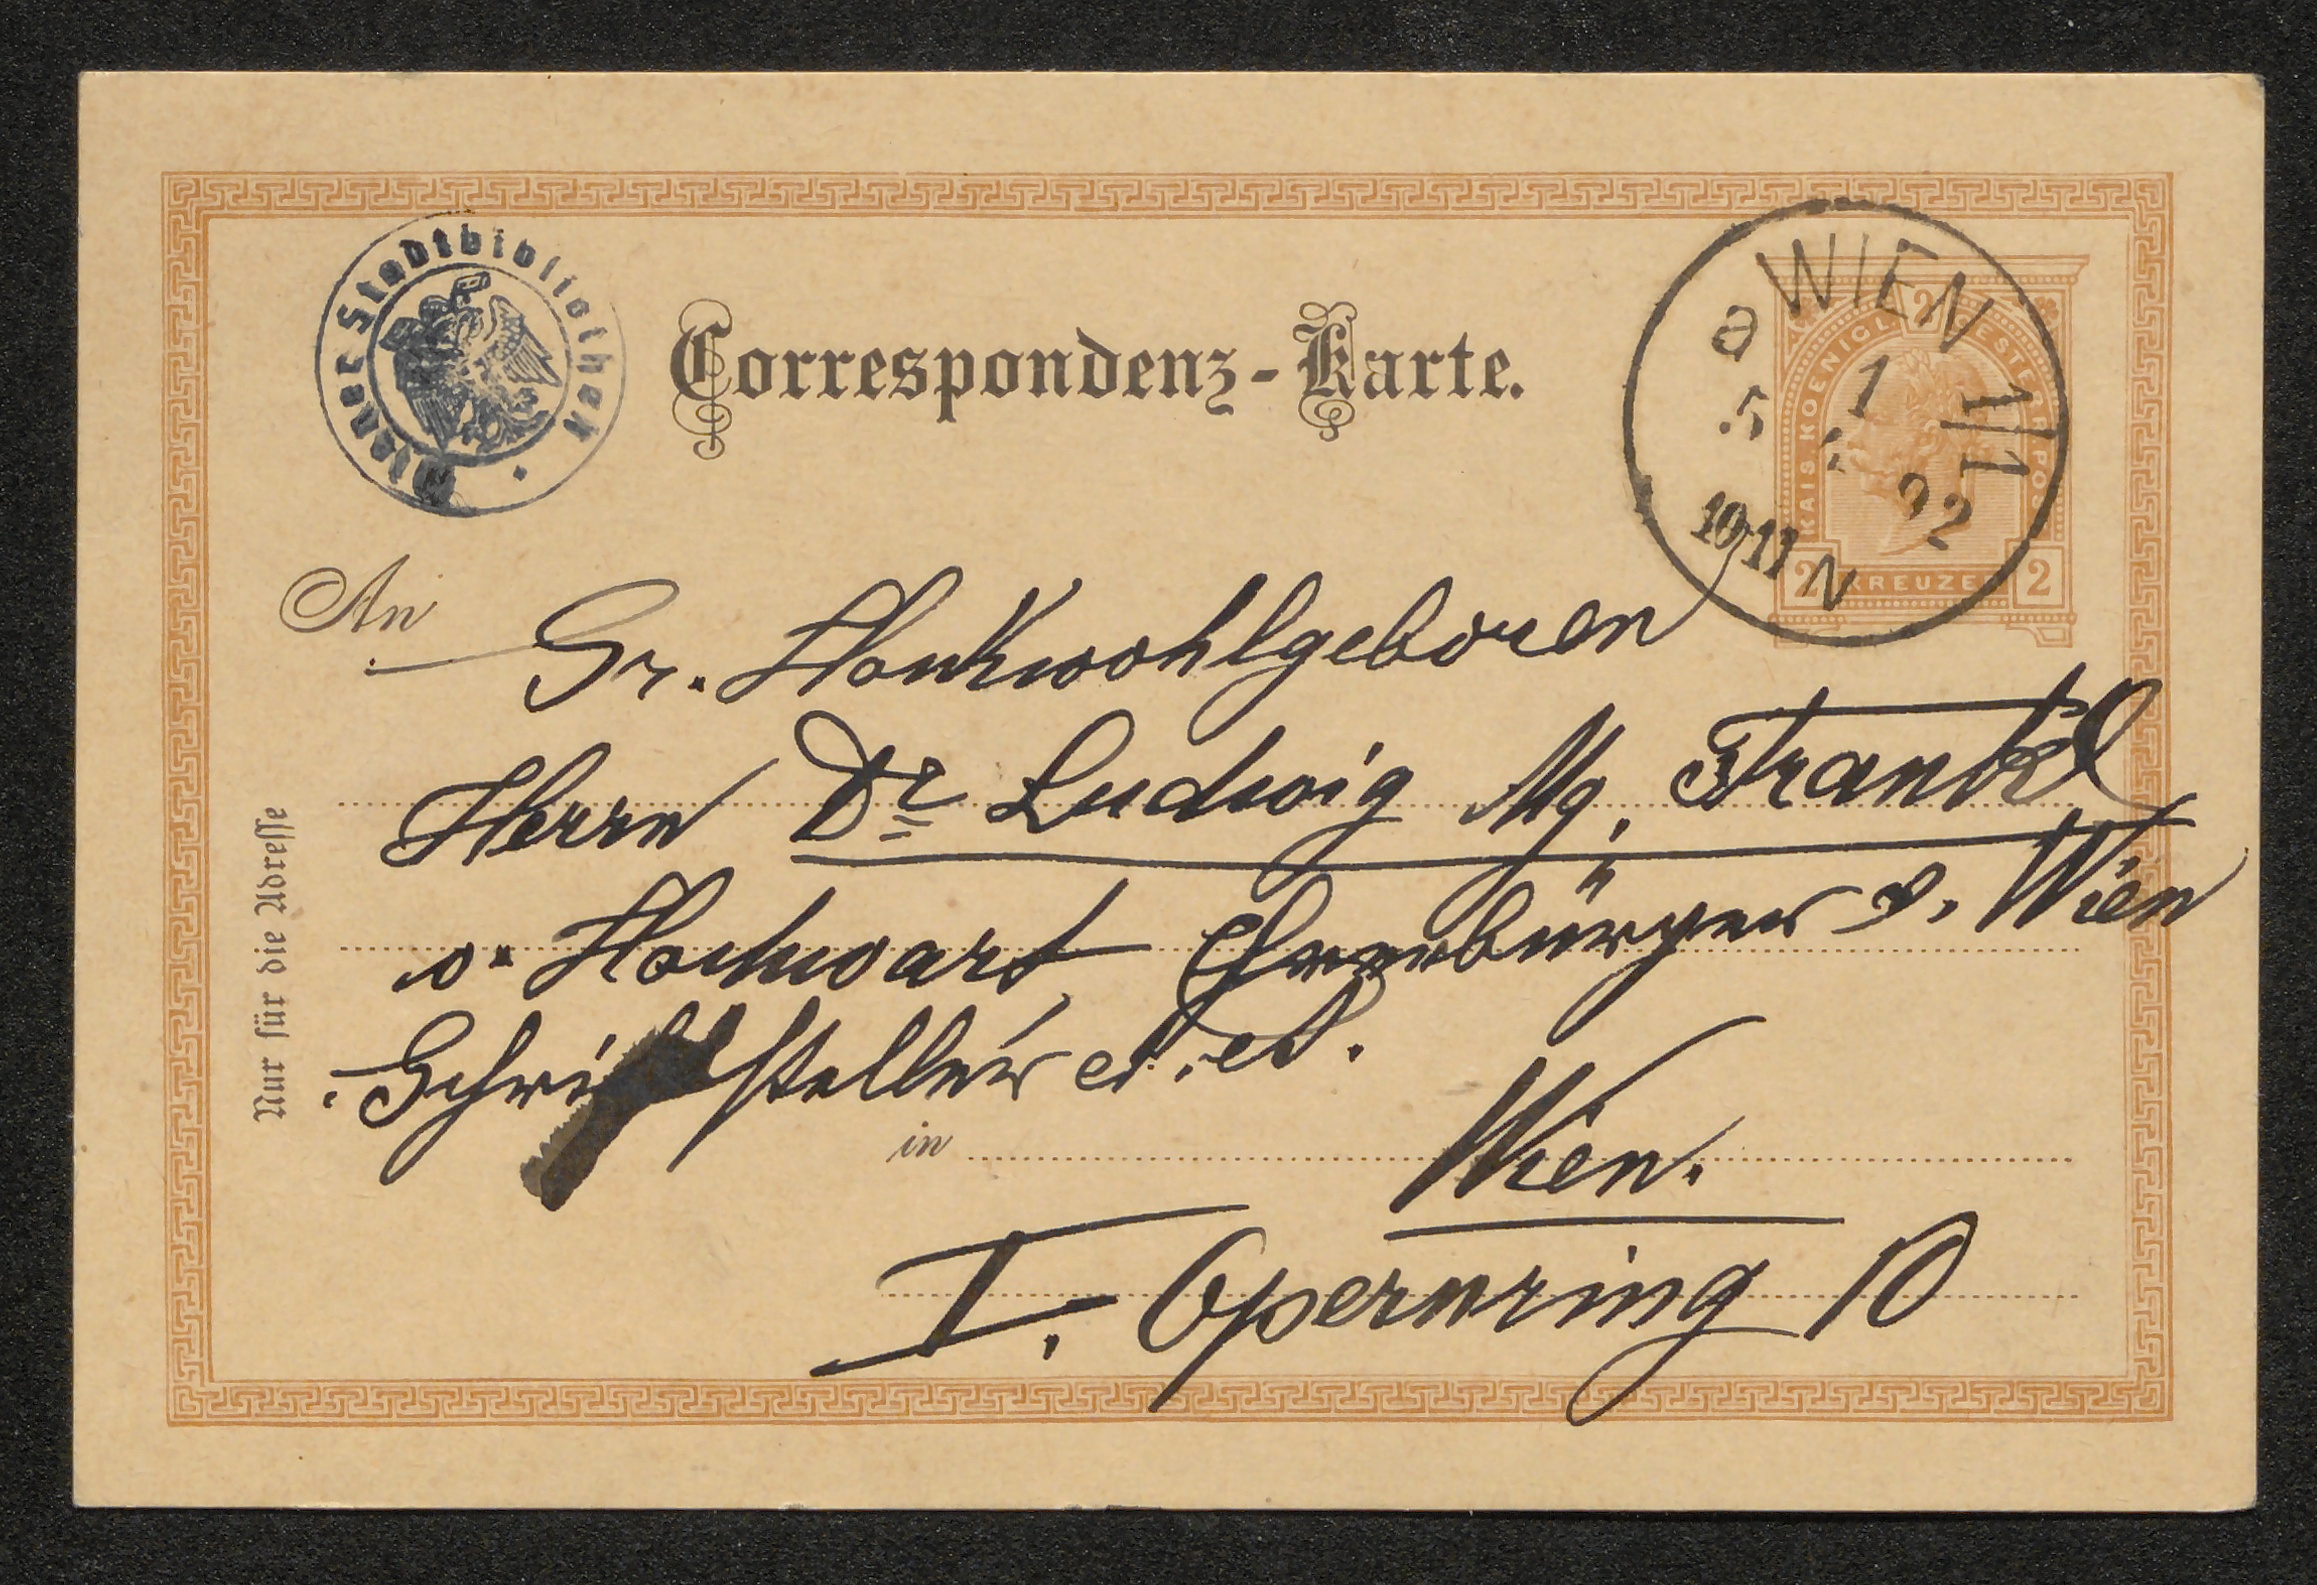 Wiener Stadtbibliothek
Correspondenz-Karte.
a WIEN 1/1
5 1 92
10-11 N
KAIS KOENIGL OESTERR POST
2 2 KREUZER 2
An Sr. Hochwohlgeboren
Herrn Dr Ludwig Aug. Frankl
v. Hochwart, Ehrenbürger v. Wien
Schriftsteller et. et.
in Wien.
I. Opernring 10
Nur für die Adresse